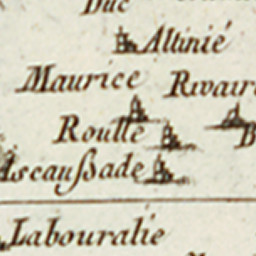 Duc
Altinié
Maurice Rivair
Roulle
B
Ascaußade
Labouralie